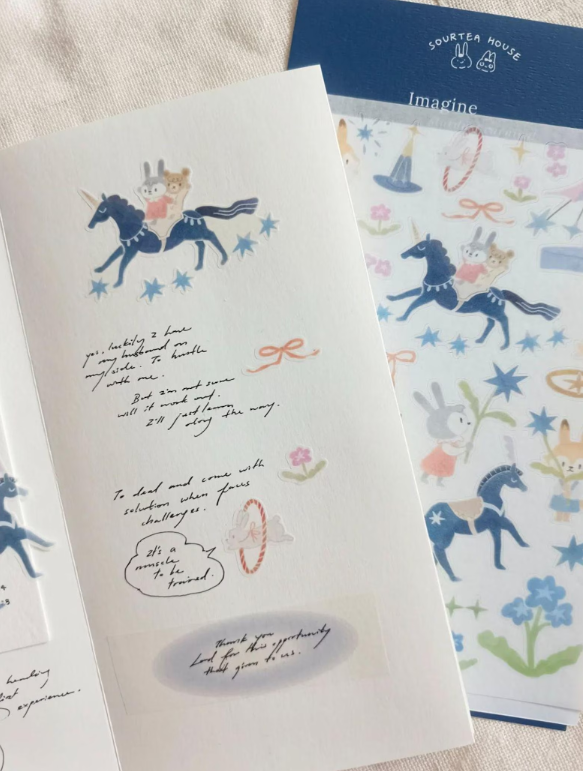 SOURTEA HOUSE
Imagine
yes, luckily I have
my husband on
my side. To hustle
with me.
But I'm not sure
will it work out.
I'll just learn
along the way.
To deal and come with
solution when faces
challenges.
It's a
muscle
to be
trained.
Thank you
Lord for this opportunity
that given to us.
healing
experience.